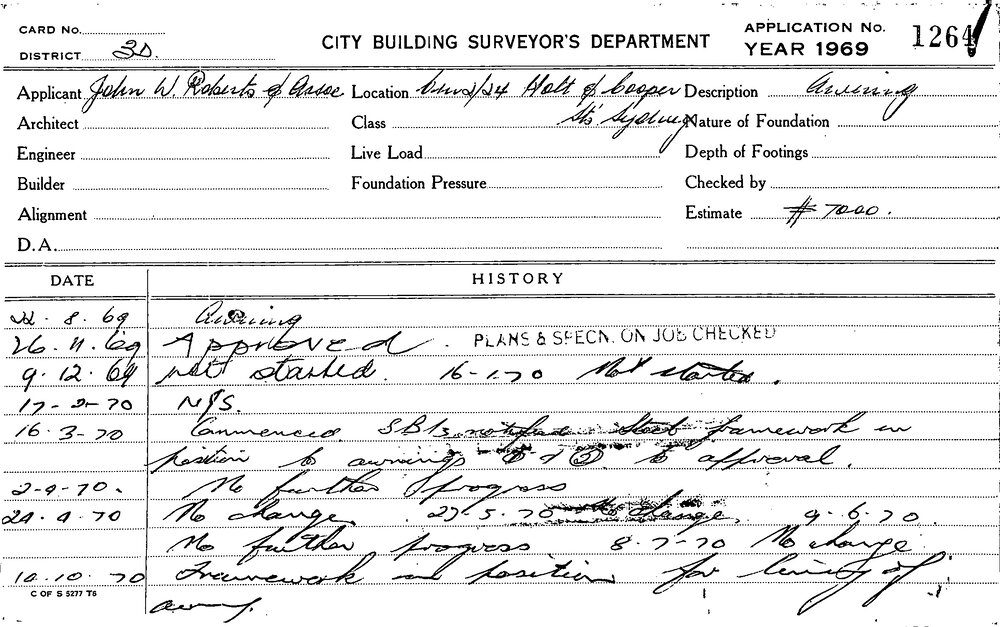 CARD No.
DISTRICT 3D.
CITY BUILDING SURVEYOR'S DEPARTMENT
APPLICATION No. 1264
YEAR 1969
Applicant John W. Roberts & Assoc Location Cnr 2/24 Holt & Cooper Description Awning
Architect Class Sts Sydney Nature of Foundation
Engineer Live Load Depth of Footings
Builder Foundation Pressure Checked by
Alignment Estimate $ 7000.
D.A.
DATE HISTORY
22. 8. 69 Awning
26. 11. 69 Approved. PLANS & SPECN. ON JOB CHECKED
9. 12. 69 not started. 16-1-70 Not started.
17-2-70 N/S.
16. 3-70 Commenced. S.B.I's notified Steel framework in
position to awnings & to approval.
2-4-70. No further progress
24. 4. 70 No change. 27.5.70 No change. 9.6.70.
No further progress 8-7-70 No change.
10.10.70 Framework in position for lining of
awng.
C OF S 5277 T6